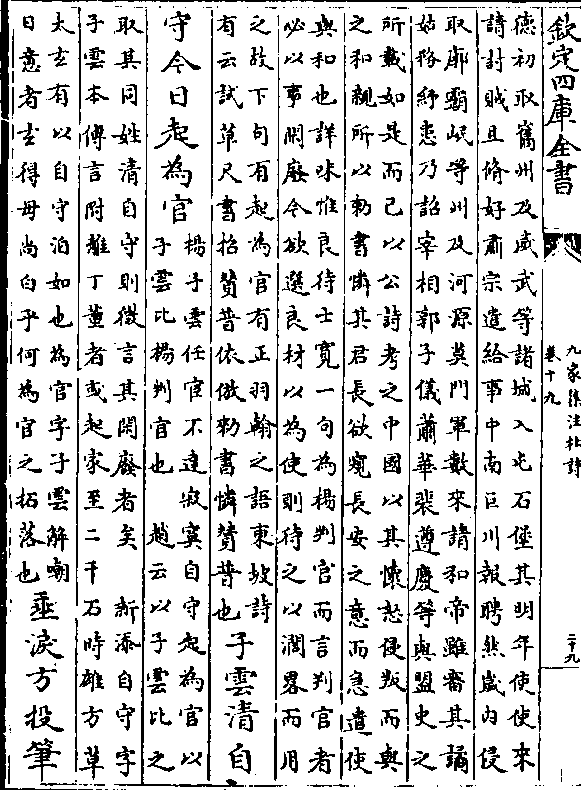 欽定四庫全書
九家集注杜詩
卷十九
二十九
德初取舊州及威武等諸城入屯石堡其明年使使來
請討賊且脩好肅宗遣給事中南巨川報聘然歲内侵
取廓霸岷等州及河源莫門軍數來請和帝雖審其譎
姑務紓患乃詔宰相郭子儀蕭華裴遵慶等與盟史之
所載如是而已以公詩考之中國以其懷恕侵叛而與
之和親所以勅書憐其君長欲窺長安之意而急遣使
與和也詳味惟良待士寛一句為楊判官而言判官者
必以事閑廢今欲選良材以為使則待之以濶畧而用
之故下句有起為官有正羽翰之語東坡詩
有云試草尺書招贊普依倣勅書憐贊普也
子雲清自
守今日起為官
楊子雲任宦不達寂寞自守起為官以
子雲比楊判官也　趙云以子雲比之
取其同姓清自守則微言其閑廢者矣　新添自守字
子雲本傳言附離丁董者或起家至二千石時雄方草
太玄有以自守泊如也為官字子雲解嘲
曰意者玄得毋尚白乎何為官之拓落也
垂淚方投筆